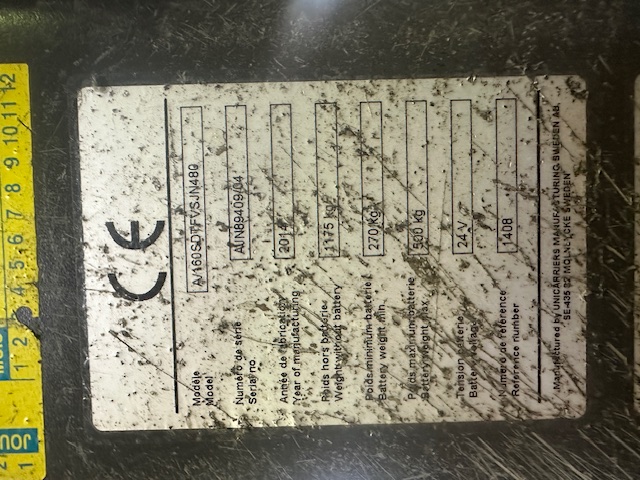 CE
Modèle
Model
A/160SDTFVSJN480
Numéro de série
Serial no.
AUN89409/04
Année de fabrication
Year of manufacturing
2014
Poids hors batterie
Weight without battery
1175 kg
Poids minimum batterie
Battery weight min
270 kg
Poids maximum batterie
Battery weight max
300 kg
Tension batterie
Battery voltage
24 V
Numéro de référence
Reference number
1408
Manufactured by UNICARRIERS MANUFACTURING SWEDEN AB,
SE-435 82 MÖLNLYCKE SWEDEN
1 2 3 4 5 6 7 8 9 10 11 12
1 2